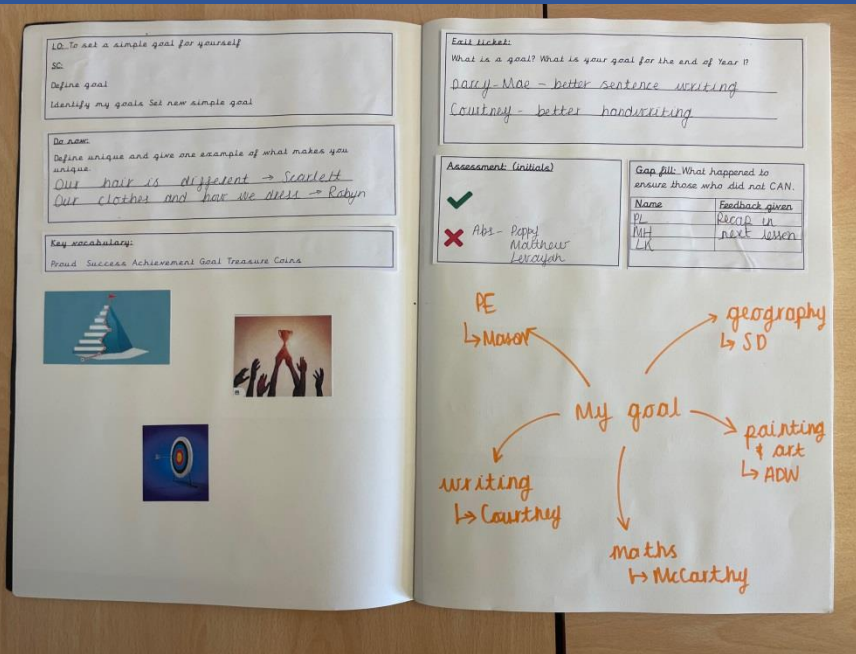 LO: To set a simple goal for yourself
SC:
Define goal
Identify my goals Set new simple goal
Do now:
Define unique and give one example of what makes you
unique.
Our hair is different → Scarlett
Our clothes and how we dress → Robyn
Key vocabulary:
Proud Success Achievement Goal Treasure Coins
Exit ticket:
What is a goal? What is your goal for the end of Year 1?
Darcy-Mae - better sentence writing
Courtney - better handwriting
Assessment: (initials)
Abs - Poppy
Matthew
Gap fill: What happened to
ensure those who did not CAN.
Name Feedback given
PL Recap in
MH next lesson
LK
PE
↳ Mason
geography
↳ SD
My goal
painting
& art
↳ ADW
writing
↳ Courtney
maths
↳ McCarthy